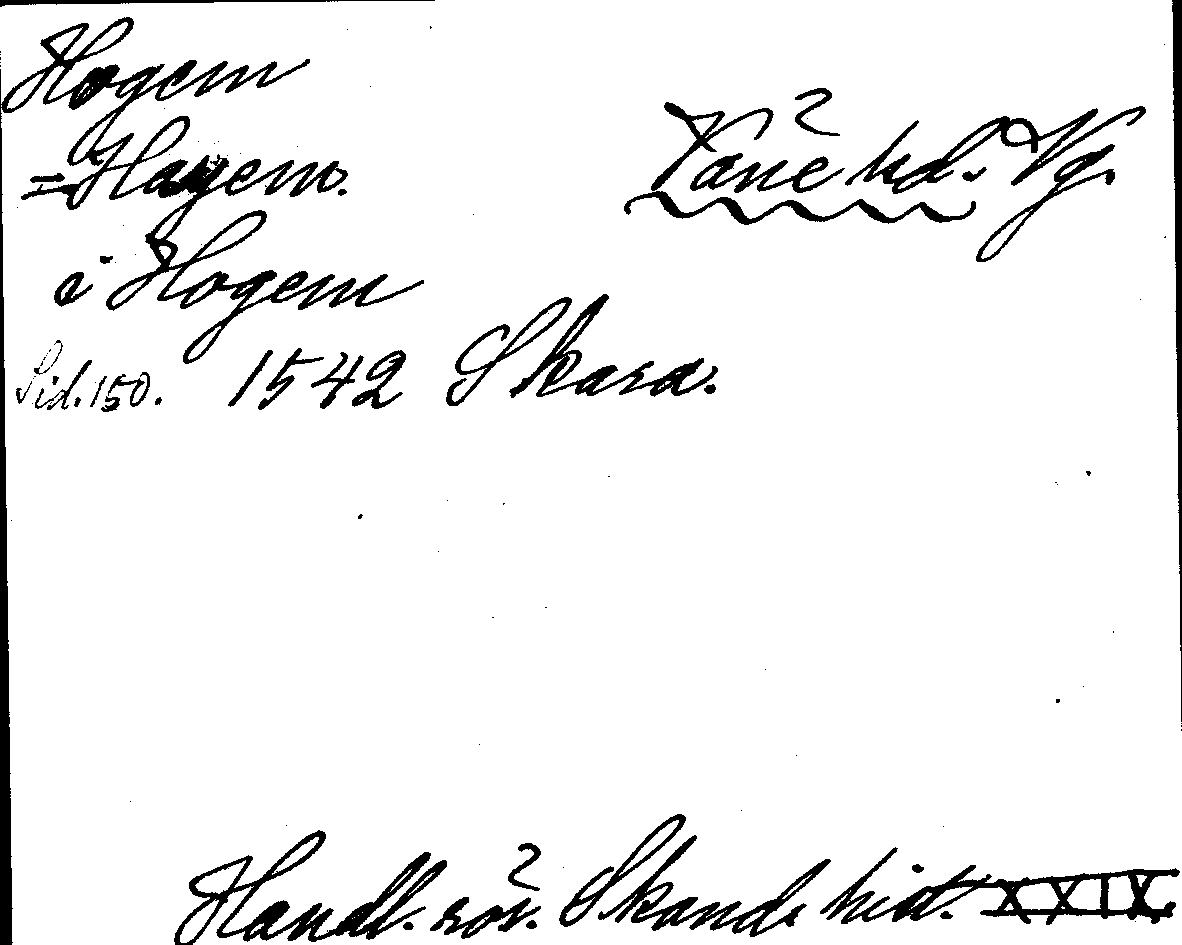 Hogem
= Hagem.
Väne hd. Vg.
i Hogem
Sid. 150. 1542 Skara.
Handl. rör. Skand. hist. XXIX.